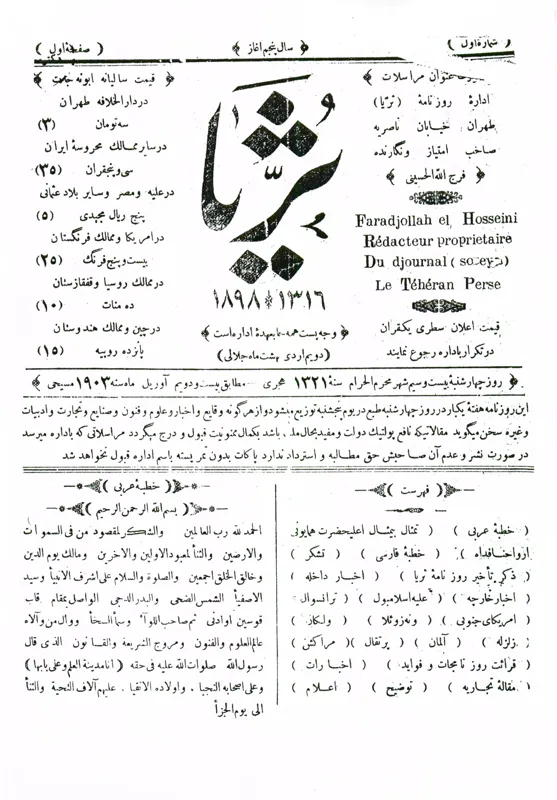 شمارهٔ اول
سال پنجم آغاز
صفحهٔ اول
عنوان مراسلات
ادارهٔ روزنامهٔ (ثریا)
طهران خیابان ناصریه
صاحب امتیاز ونگارنده
فرج الله الحسینی
Faradjollah el Hosseini
Rédacteur proprietaire
Du djournal (
Le Téhéran Perse
قیمت اعلان سطری یکقران
در تکرار باداره رجوع نمایند
ثریا
۱۳۱۶ ۱۸۹۸
وجه پست همه جا بعهدهٔ اداره است
(دویم اردی بهشت ماه جلالی)
قیمت سالیانه ابونه
در دارالخلافه طهران
سه تومان (۳)
در سایر ممالک محروسهٔ ایران
سی و پنجقران (۳۵)
در علیه ومصر وسایر بلاد عثمانی
پنج ریال مجیدی (۵)
در امریکا وممالک فرنگستان
بیست وپنج فرنگ (۲۵)
در ممالک روسیا وقفقازستان
ده منات (۱۰)
در چین وممالک هندوستان
پانزده روپیه (۱۵)
روز چهارشنبهٔ بیست وسیم شهر محرم الحرام سنهٔ ۱۳۲۱ هجری - مطابق بیست ودویم آوریل ماه سنه ۱۹۰۳ مسیحی
این روزنامه هفتهٔ یکبار در روز چهارشنبه طبع در یوم پنجشنبه توزیع میشود و از هر گونه وقایع واخبار وعلوم وفنون وصنایع وتجارت وادبیات
وغیره سخن میگوید مقالاتیکه نافع پولتیک دولت ومفید بحال ملت باشد بکمال ممنونیت قبول و درج میگردد مراسلاتی که باداره میرسد
در صورت نشر وعدم آن صاحبش حق مطالبه و استرداد ندارد پاکات بدون تمر پسته باسم اداره قبول نخواهد شد
فهرست
(خطبهٔ عربی) (تمثال بیمثال اعلیحضرت همایونی
ارواحنافداه) (خطبهٔ فارسی) (تشکر)
(ذکر تأخیر روزنامهٔ ثریا) (اخبار داخله)
(اخبار خارجه) (علیه اسلامبول) (ترانسوال)
(امریکای جنوبی) (ونه زوئلا) (ولکان)
(زلزله) (آلمان) (پرتقال) (مراکش)
(قرائت روزنامجات و فواید) (اخبارات)
(مقالهٔ تجاریه) (توضیح) (اعلام)
خطبهٔ عربی
بسم الله الرحمن الرحیم
الحمد لله رب العالمین والشکر لمقصود من فی السموات
والارضین والثنا لمعبود الاولین والاخرین ومالک یوم الدین
وخالق الخلق اجمعین والصلوة والسلام علی اشرف الانبیا وسید
الاصفیا الشمس الضحی والبدر الدجی الواصل بمقام قاب
قوسین اوادنی ثم صاحب اللوا وسما السخا ووال من والاه
عالم العلوم والفنون ومروج الشریعة والقانون الذی قال
رسول الله صلوات الله علیه فی حقه (انا مدینة العلم وعلی بابها)
وعلی اصحابه النجبا واولاده الاتقیا علیهم آلاف التحیة والثنا
الی یوم الجزا